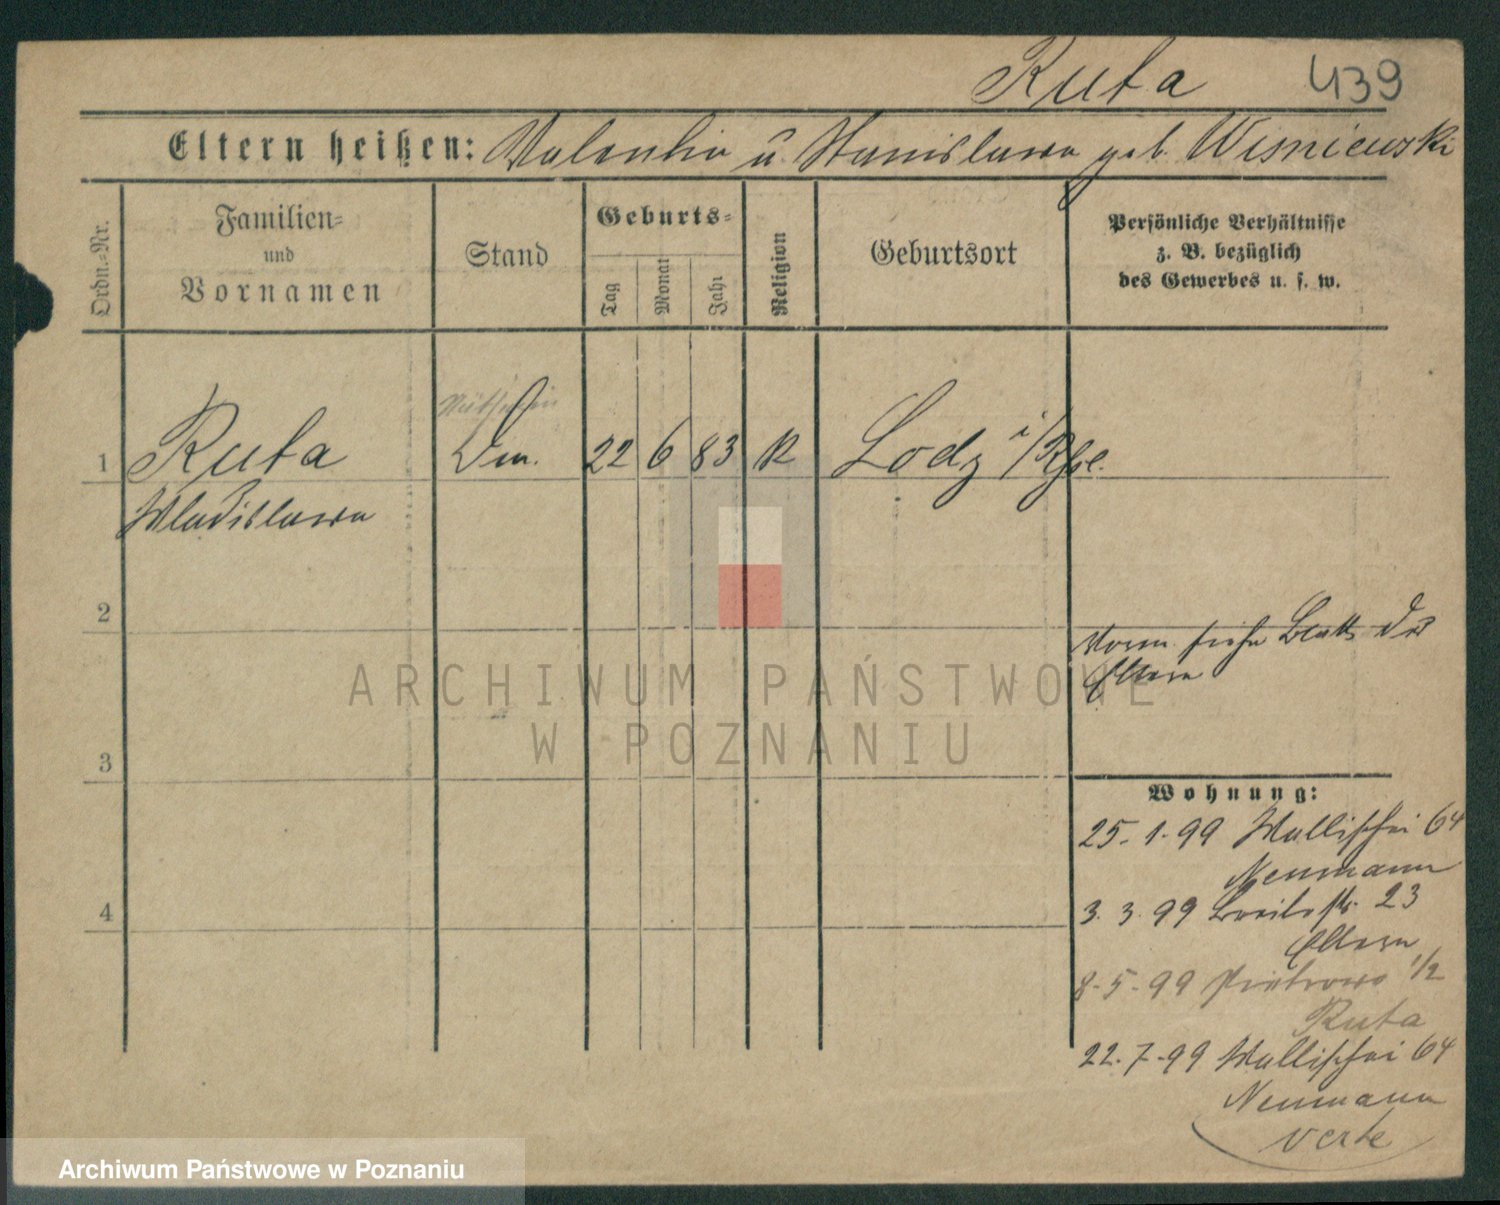 Ruta 439
Eltern heißen: Valentin u. Stanislawa geb. Wisniewski
Ordn.-Nr.
Familien-
und
Vornamen
Stand
Geburts-
Tag
Monat
Jahr
Religion
Geburtsort
Persönliche Verhältnisse
z. B. bezüglich
des Gewerbes u. s. w.
1 Ruta 22 6 83 K Lodz i/
Wladislawa
2
Vorm. siehe Blatt der
Eltern
3
Wohnung:
25. 1. 99 Wallischei 64
Neumann
4
3. 3. 99 23
Eltern
8. 5. 99 Piotrowo 1/2
Ruta
22. 7. 99 Wallischei 64
Neumann
verte
ARCHIWUM PAŃSTWOWE
W POZNANIU
Archiwum Państwowe w Poznaniu